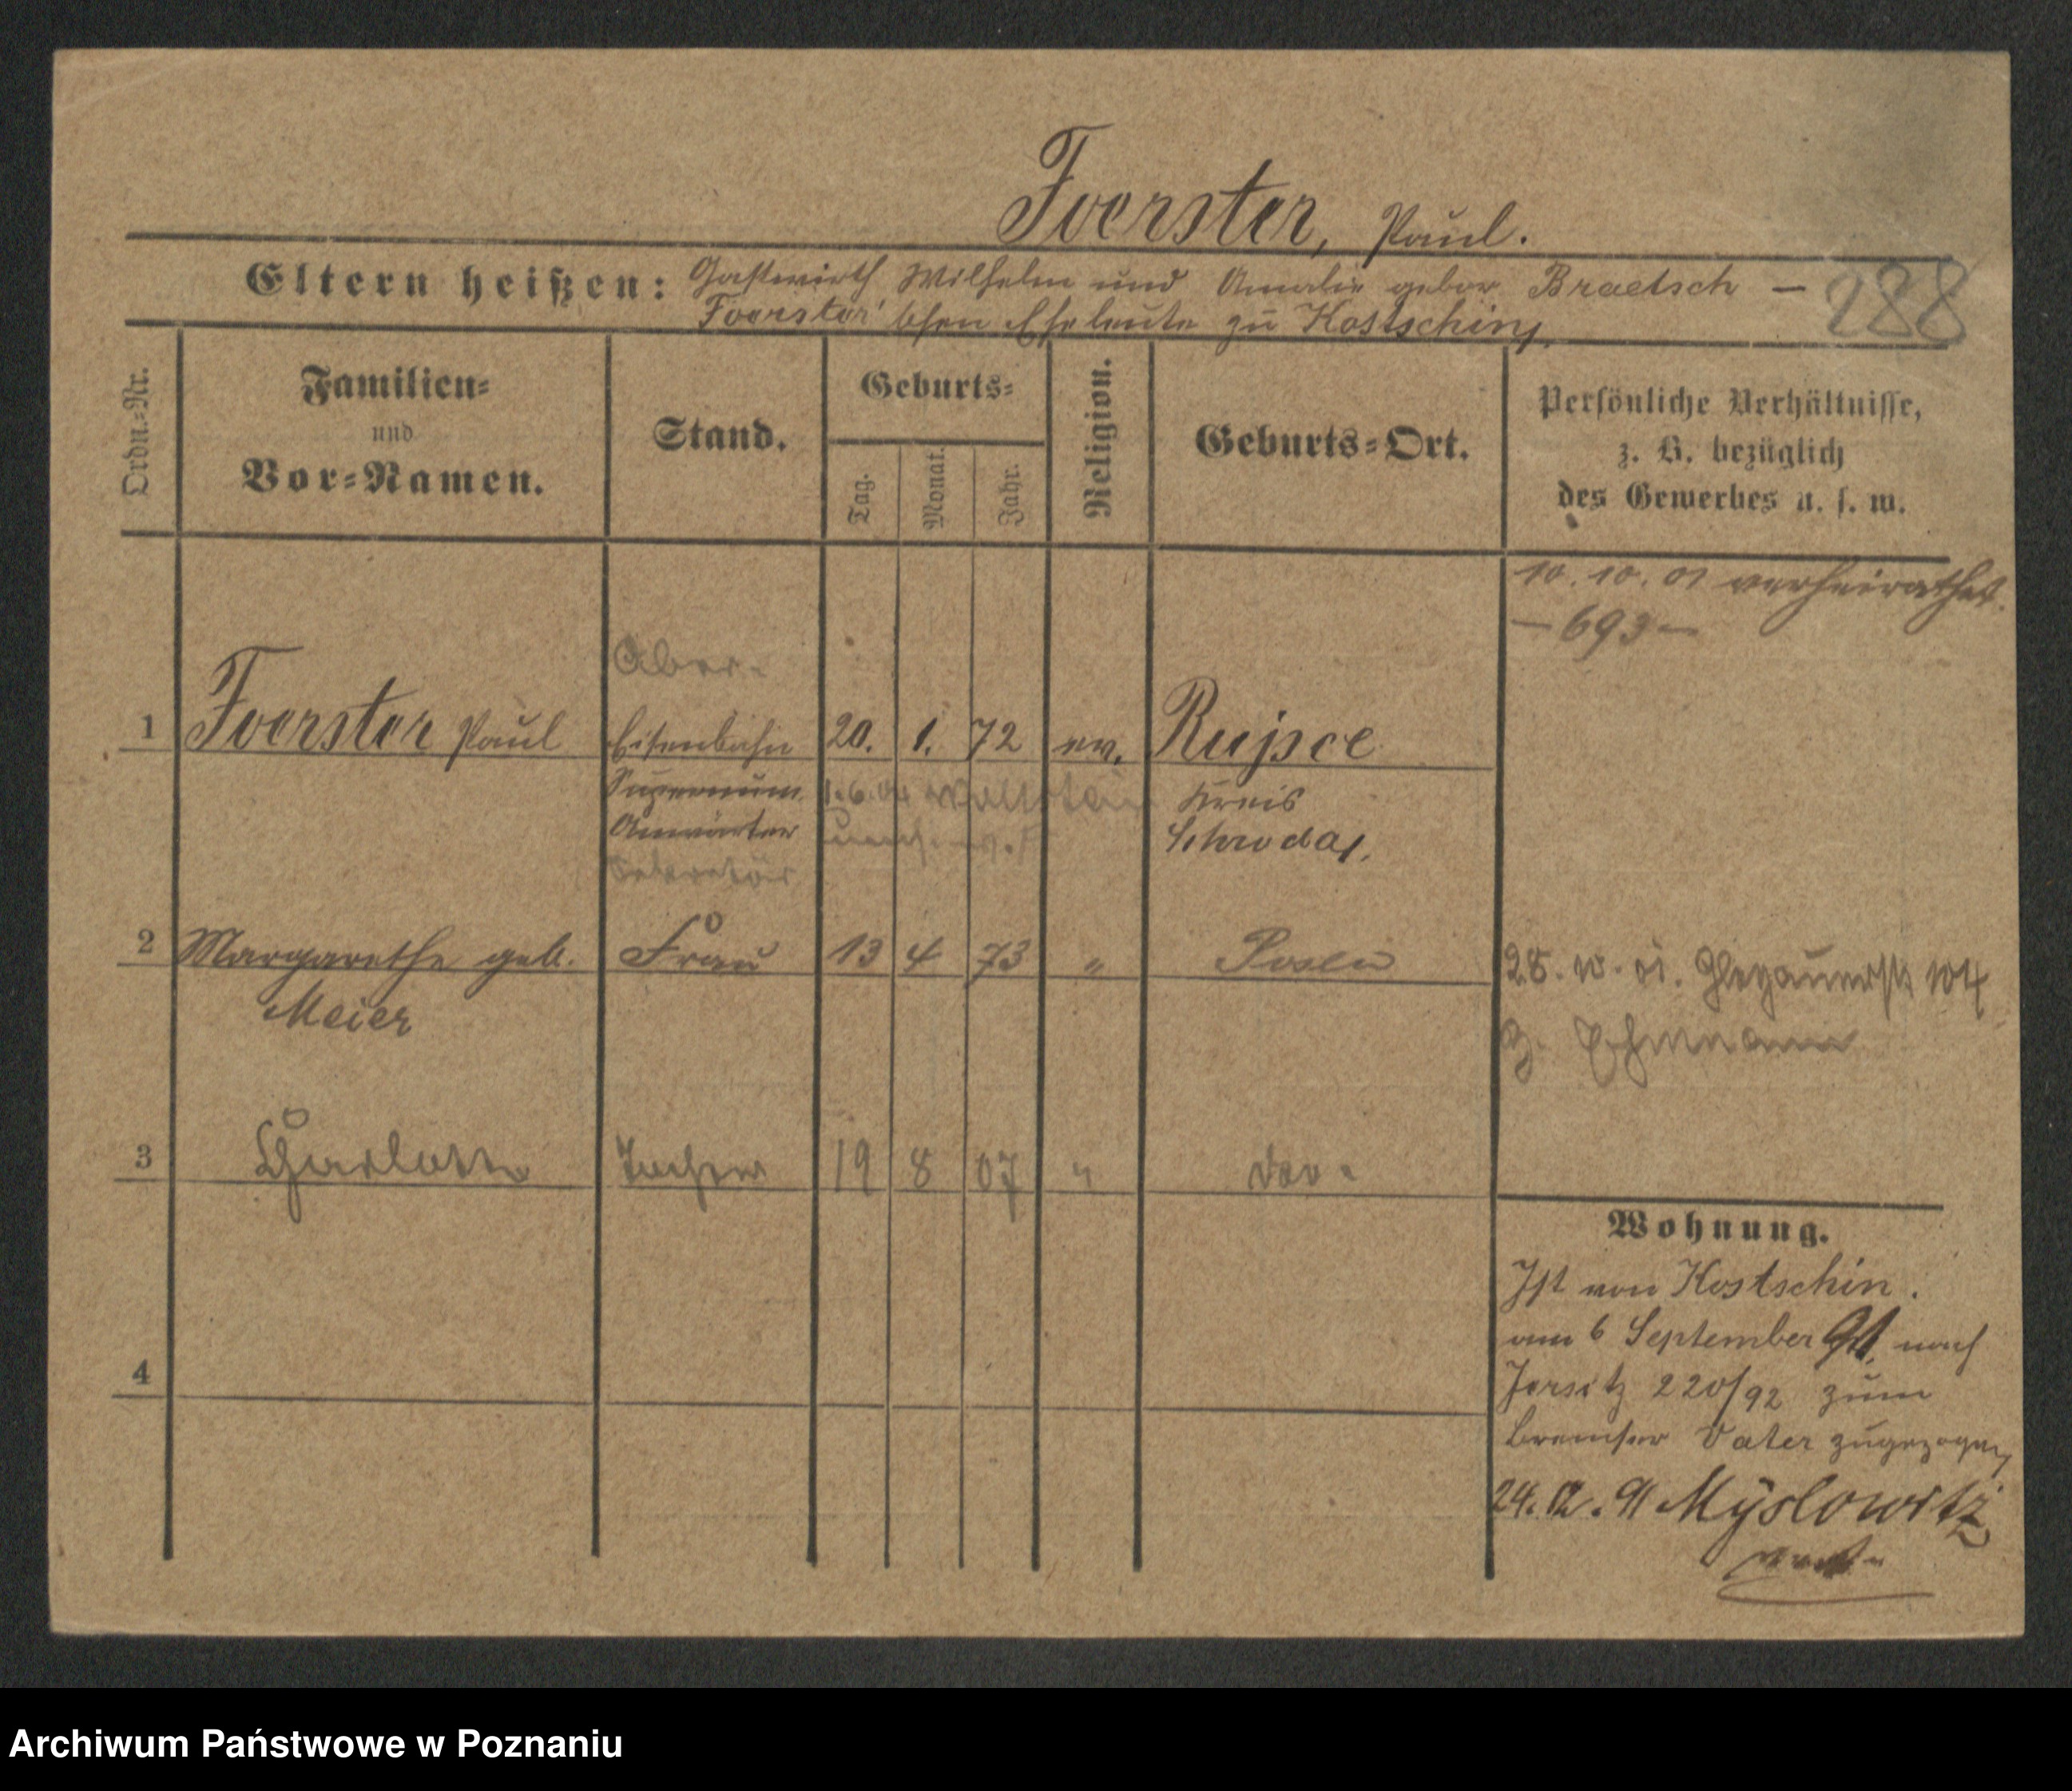 Foerster, Paul.
Eltern heißen: Gastwirth Wilhelm und Amalie gebor Braetsch —
Foerster'schen Eheleute zu Kostschin,
288
Ordn.-Nr.
Familien-
und
Vor-Namen.
Stand.
Geburts-
Tag.
Monat.
Jahr.
Religion.
Geburts-Ort.
Persönliche Verhältnisse,
z. B. bezüglich
des Gewerbes u. s. w.
10. 10. 01 verheirathet.
— 693 —
Ober-
1 Foerster Paul Eisenbahn 20. 1. 72 ev. Rujsce
Supernum. 1.6.04 Wollstein Kreis
Anwärter Schroda,
Sekretär
2 Margarethe geb. Frau 13 4 73 " Posen
Meier
28. 10. 01. Glogauerstr 104
3 Charlotte Tochter 19 8 07 "
4
Wohnung.
Ist von Kostschin.
am 6 September 91, nach
Jersitz 220/92 zum
Bremser Vater zugezogen,
24. 12. 91 Myslowitz